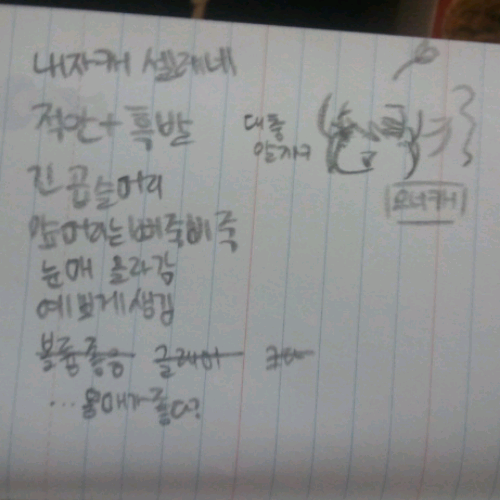 내자캐 셀레네
적안+흑발
긴 곱슬머리
앞머리는 삐죽삐죽
눈매 올라감
예쁘게생김
볼륨좋음 글래머 크다
...몸매가좋다?
대충
오너캐